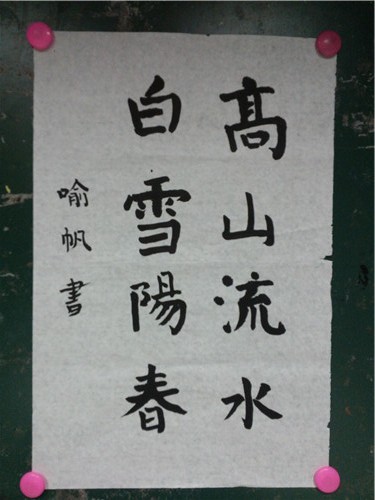 髙山流水
白雪陽春
喻帆書